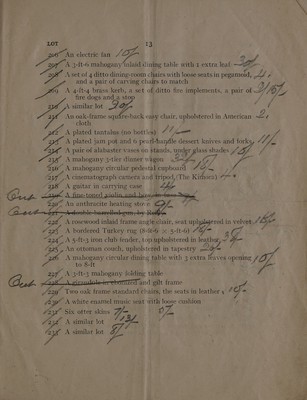 LOT 13
206 An electric fan 10/-
207 A 3-ft-6 mahogany inlaid dining table with 1 extra leaf
208 A set of 4 ditto dining-room chairs with loose seats in pegamoid,
and a pair of carving chairs to match
209 A 4-ft-4 brass kerb, a set of ditto fire implements, a pair of
fire dogs and a stop
210 A similar lot
211 An oak-frame square-back easy chair, upholstered in American
cloth
212 A plated tantalus (no bottles) 11/-
213 A plated jam pot and 6 pearl-handle dessert knives and forks 11/-
214 A pair of alabaster vases on stands, under glass shades
215 A mahogany 3-tier dinner wagon
216 A mahogany circular pedestal cupboard
217 A cinematograph camera and tripod (The Kinora)
218 A guitar in carrying case
Out 219 A fine-toned violin and
220 An anthracite heating stove
Out 221 A double-barrelled gun, by
222 A rosewood inlaid frame armchair, seat upholstered in velvet
223 A bordered Turkey rug (8-ft-6 × 5-ft-6)
224 A 5-ft-3 iron club fender, top upholstered in leather
225 An ottoman couch, upholstered in tapestry
226 A mahogany circular dining table with 3 extra leaves opening
to 8-ft
227 A 3-ft-3 mahogany folding table
Out 228 A girandole in ebonized and gilt frame
229 Two oak frame standard chairs, the seats in leather
230 A white enamel music seat with loose cushion
231 Six otter skins
232 A similar lot
233 A similar lot